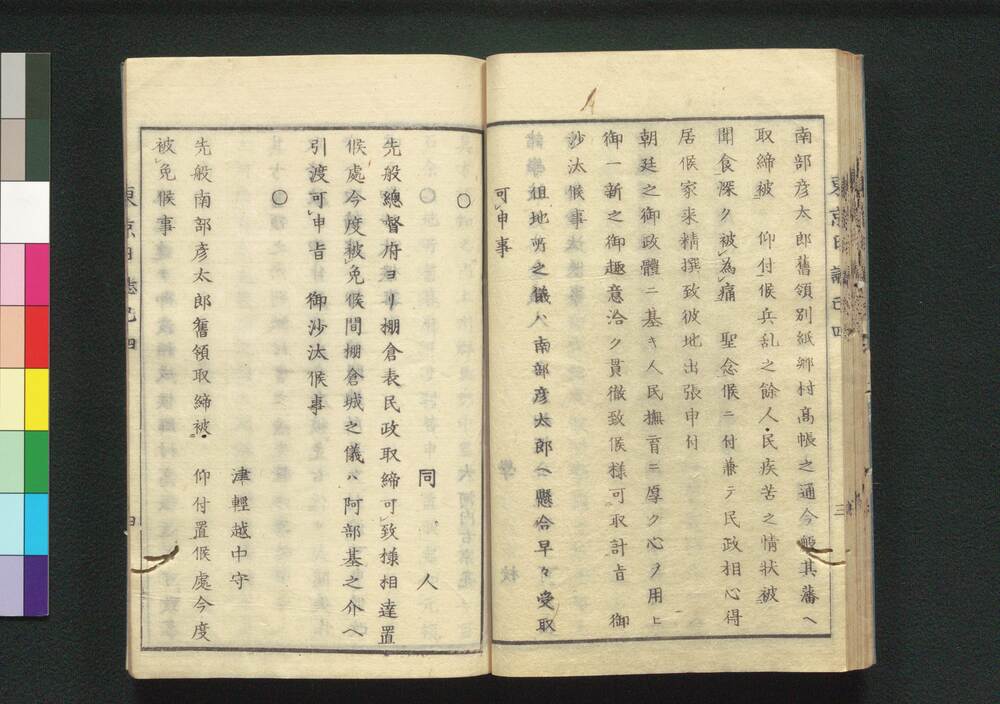 南部彦太郎舊領別紙郷村高帳之通今般其藩ヘ
取締被　仰付候兵乱之餘人民疾苦之情状被
聞食深ク被為痛　聖念候ニ付兼テ民政相心得
居候家来精撰致彼地出張申付
朝廷之御政體ニ基キ人民撫育ニ厚ク心ヲ用ヒ
御一新之御趣意洽ク貫徹致候様可取計旨　御
沙汰候事
但地所之儀ハ南部彦太郎ヘ懸合早々受取
可申事
東京日誌巳四
三
○
同　人
先般總督府ヨリ棚倉表民政取締可致様相達置
候處今度被免候間棚倉城之儀ハ阿部基之介ヘ
引渡可申旨　御沙汰候事
○
津輕越中守
先般南部彦太郎舊領取締被　仰付置候處今度
被免候事
東京日誌巳四
四